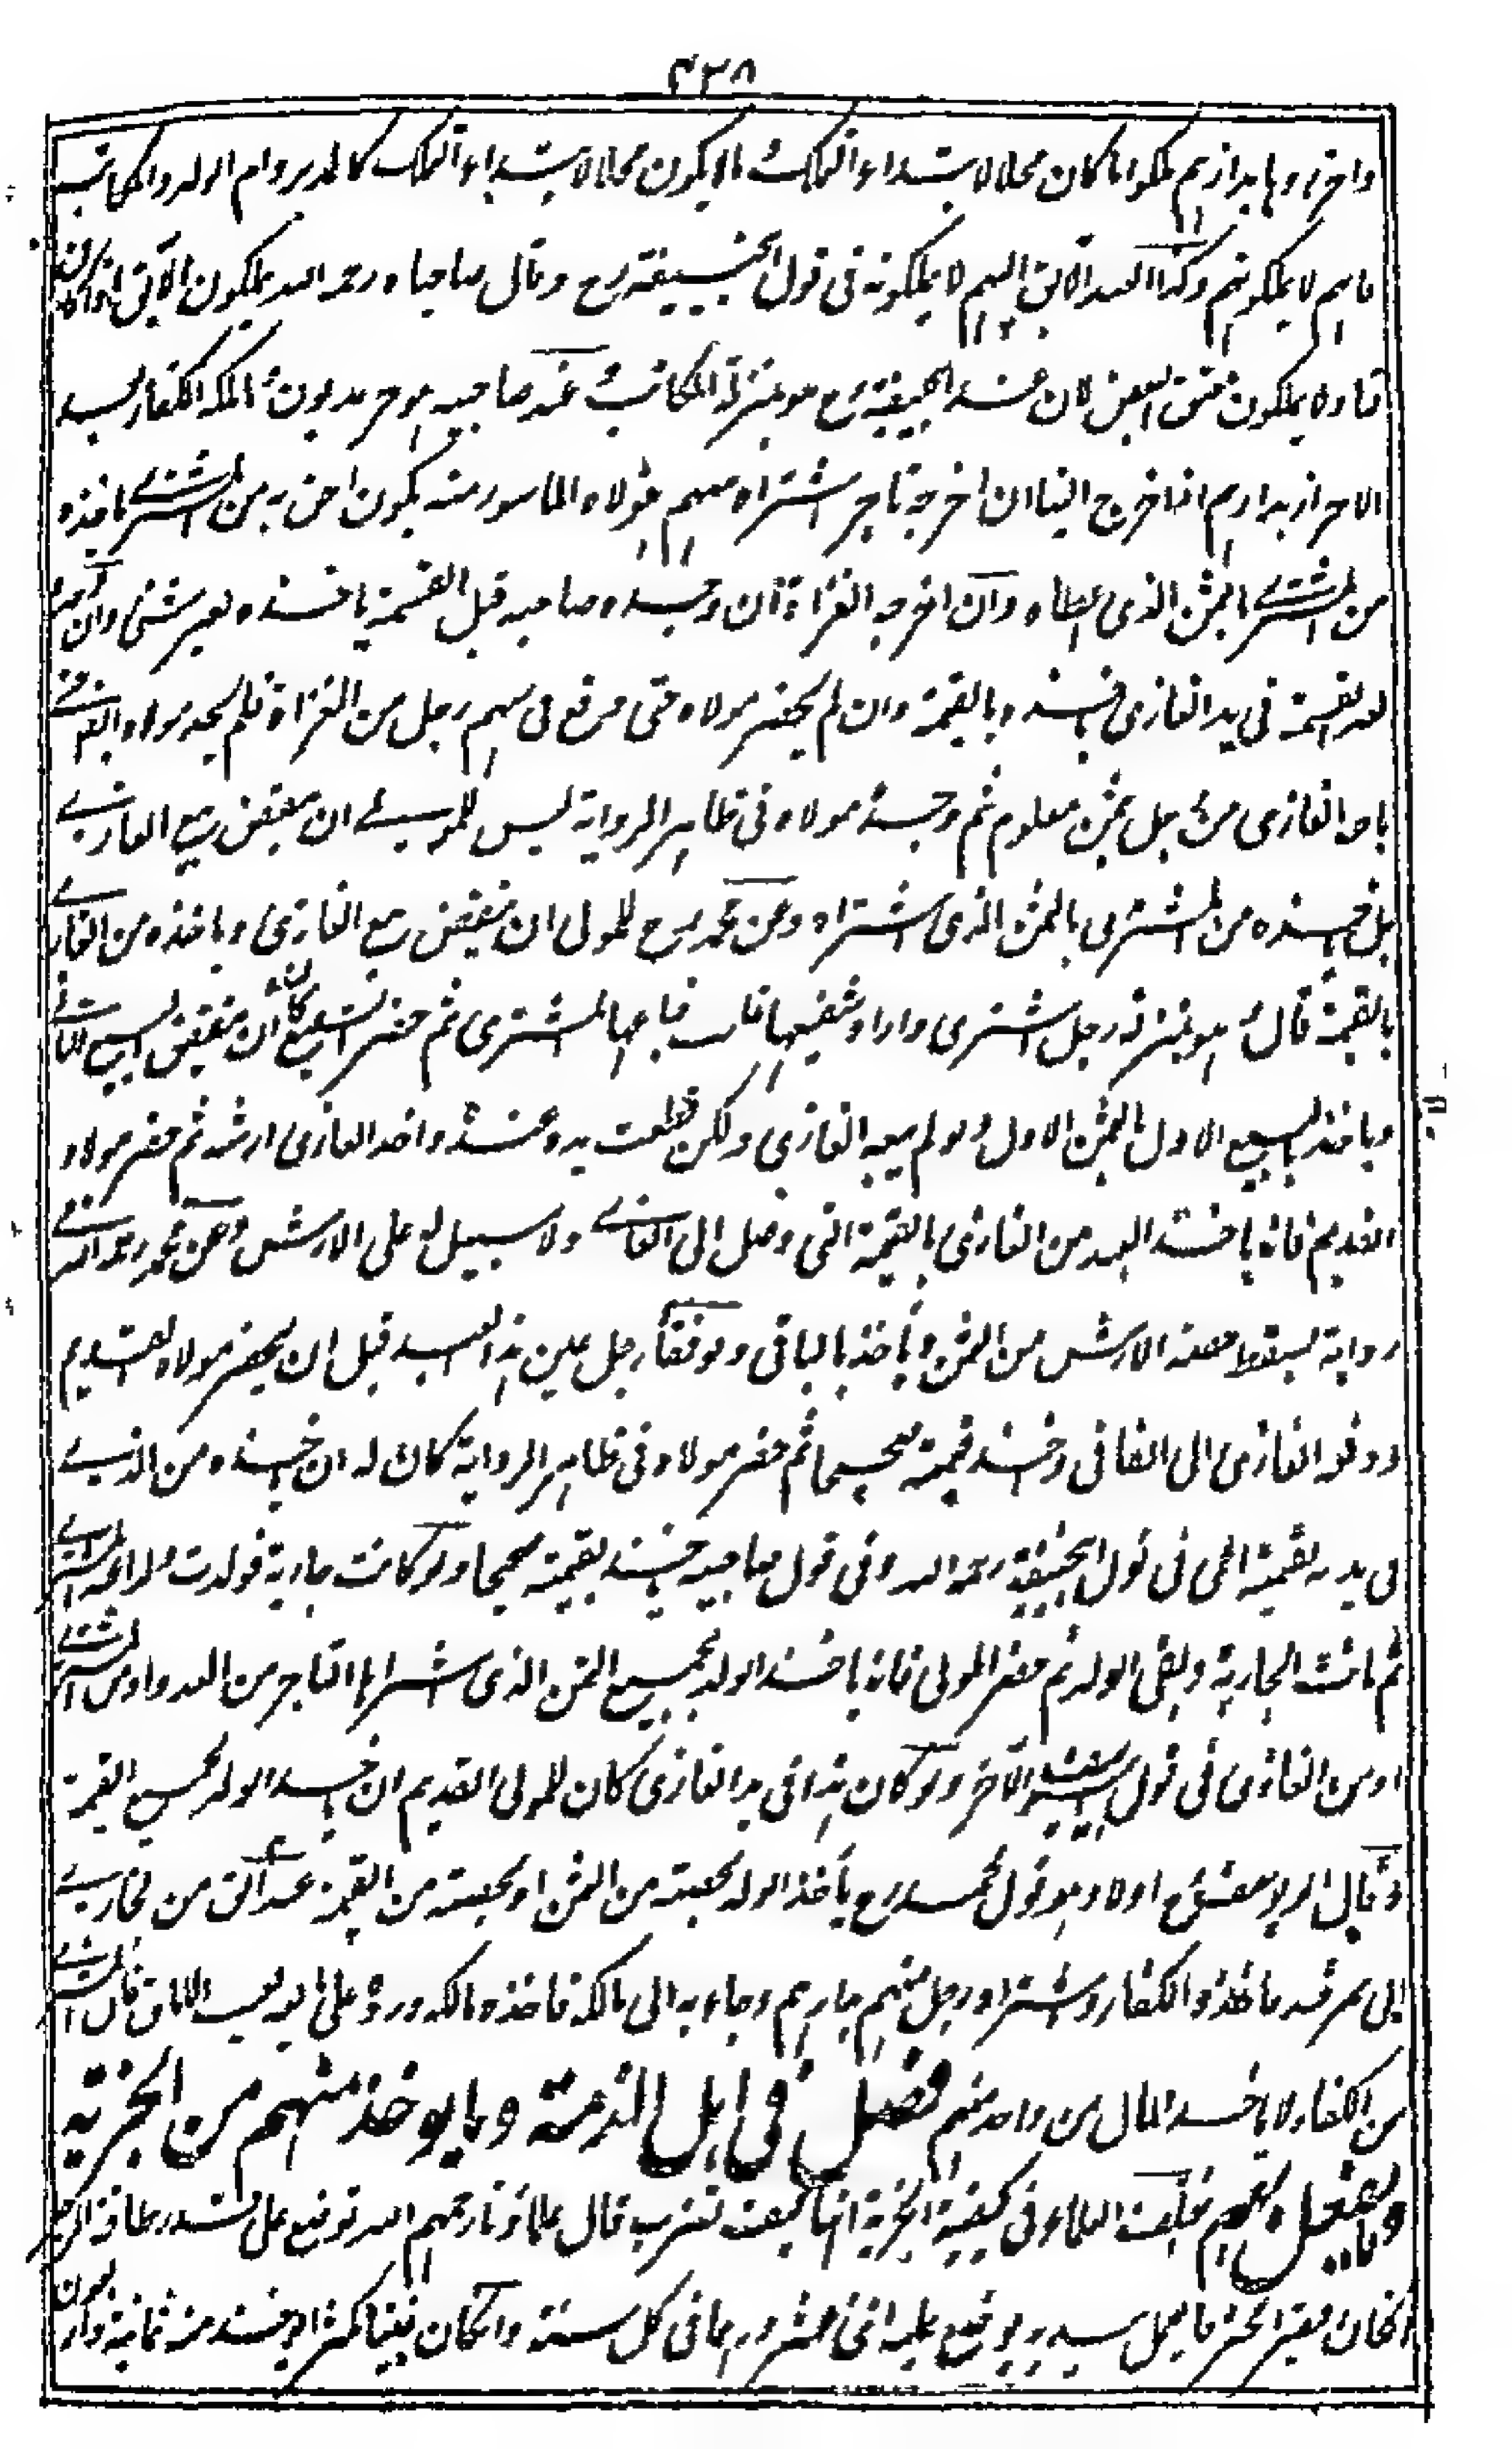 ٤٢٨
واحرزوها بدارهم ملكوا ما كان محلا لابتداء التملك وما لا يكون محلا لابتداء التملك كالمدبر وام الولد والمكاتب
فانهم لا يملكونهم وكذا العبد الآبق اليهم لا يملكونه فى قول ابيحنيفة رح وقال صاحباه رحمه الله يملكون الآبق
ولا يملكون معتق البعض لان عند ابيحنيفة رح هو بمنزلة المكاتب وعند صاحبيه هو حر مديون وما ملكه الكفار بعد
الاحراز بدارهم اذا خرج الينا ان اخرجه تاجر اشتراه منهم فمولاه الماسور منه يكون احق به من المشترى ياخذه
من المشترى بالثمن الذى اعطاه وان اخرجه الغزاة ان وجده صاحبه قبل القسمة ياخذه بغير شئ وان وجده
بعد القسمة فى يد الغازى ياخذه بالقيمة وان لم يحضر مولاه حتى وقع فى سهم رجل من الغزاة فلم يجده مولاه القديم حتى
باعه الغازى من رجل بثمن معلوم ثم وجده مولاه فى ظاهر الرواية ليس للمولى ان ينقض بيع الغازى
بل ياخذه من المشترى بالثمن الذى اشتراه وعن محمد رح للمولى ان ينقض بيع الغازى وياخذه من الغازى
بالقيمة قال هو بمنزلة رجل اشترى دارا وشفيعها غائب فباعها المشترى ثم حضر الشفيع كان له ان ينقض البيع الثانى
وياخذ بالبيع الاول بالثمن الاول ولو لم يبعه الغازى ولكن قطعت يده عنده واخذ الغازى ارشه ثم حضر مولاه
القديم فانه ياخذ العبد من الغازى بالقيمة التى وصل الى الغازى ولا سبيل له على الارش وعن محمد رحمه الله فى
رواية يسقط حصة الارش من الثمن وياخذ بالباقى ولو فقأ رجل عين هذا العبد قبل ان يحضر مولاه القديم
ودفعه الغازى الى الفاقئ واخذ قيمته صحيحا ثم حضر مولاه فى ظاهر الرواية كان له ان ياخذه من الذى
فى يده بقيمته اعمى فى قول ابيحنيفة رحمه الله وفى قول صاحبيه ياخذه بقيمته صحيحا ولو كانت جارية فولدت عند المشترى
ثم ماتت الجارية وبقى الولد ثم حضر المولى فانه ياخذ الولد بجميع الثمن الذى اشتراها التاجر من العدو او من المشترى
او من الغازى فى قول ابى يوسف الآخر ولو كان هذا فى يد الغازى كان للمولى القديم ان ياخذ الولد بجميع القيمة
وقال ابو يوسف رح اولا وهو قول محمد رح يأخذ الولد بحصته من الثمن او بحصته من القيمة عبد ابق من بخارى
الى سمرقند فاخذه الكفار واشتراه رجل منهم وجاء به الى مالكه فاخذه مالكه
من الكفار لا ياخذ المال من واحد منهم فصل فى اهل الذمة وما يوخذ منهم من الجزية
وما يفعل بهم اختلف العلماء فى كيفية الجزية انها كيف تضرب قال علماؤنا رحمهم الله توضع على قدر طاقة
ان كان فقيرا يوضع عليه اثنى عشر درهما فى كل سنة وان كان غنيا مكثرا يوخذ منه ثمانية واربعون